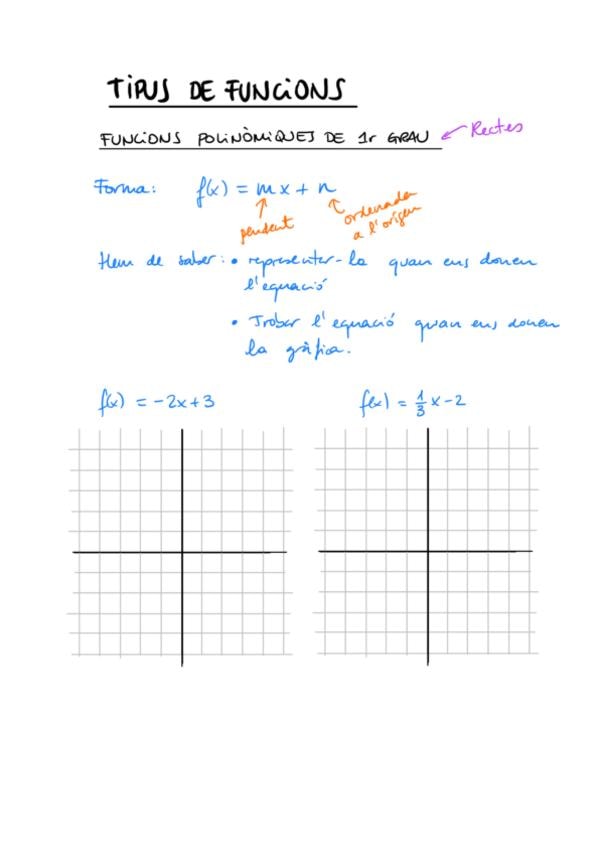 TIPUS DE FUNCIONS
FUNCIONS POLINÒMIQUES DE 1r GRAU ← Rectes
Forma: f(x) = mx + n
pendent
ordenada
a l'origen
Hem de saber: • representar-la quan ens donen
l'equació
• Trobar l'equació quan ens donen
la gràfica.
f(x) = -2x+3
f(x) = 1/3 x - 2